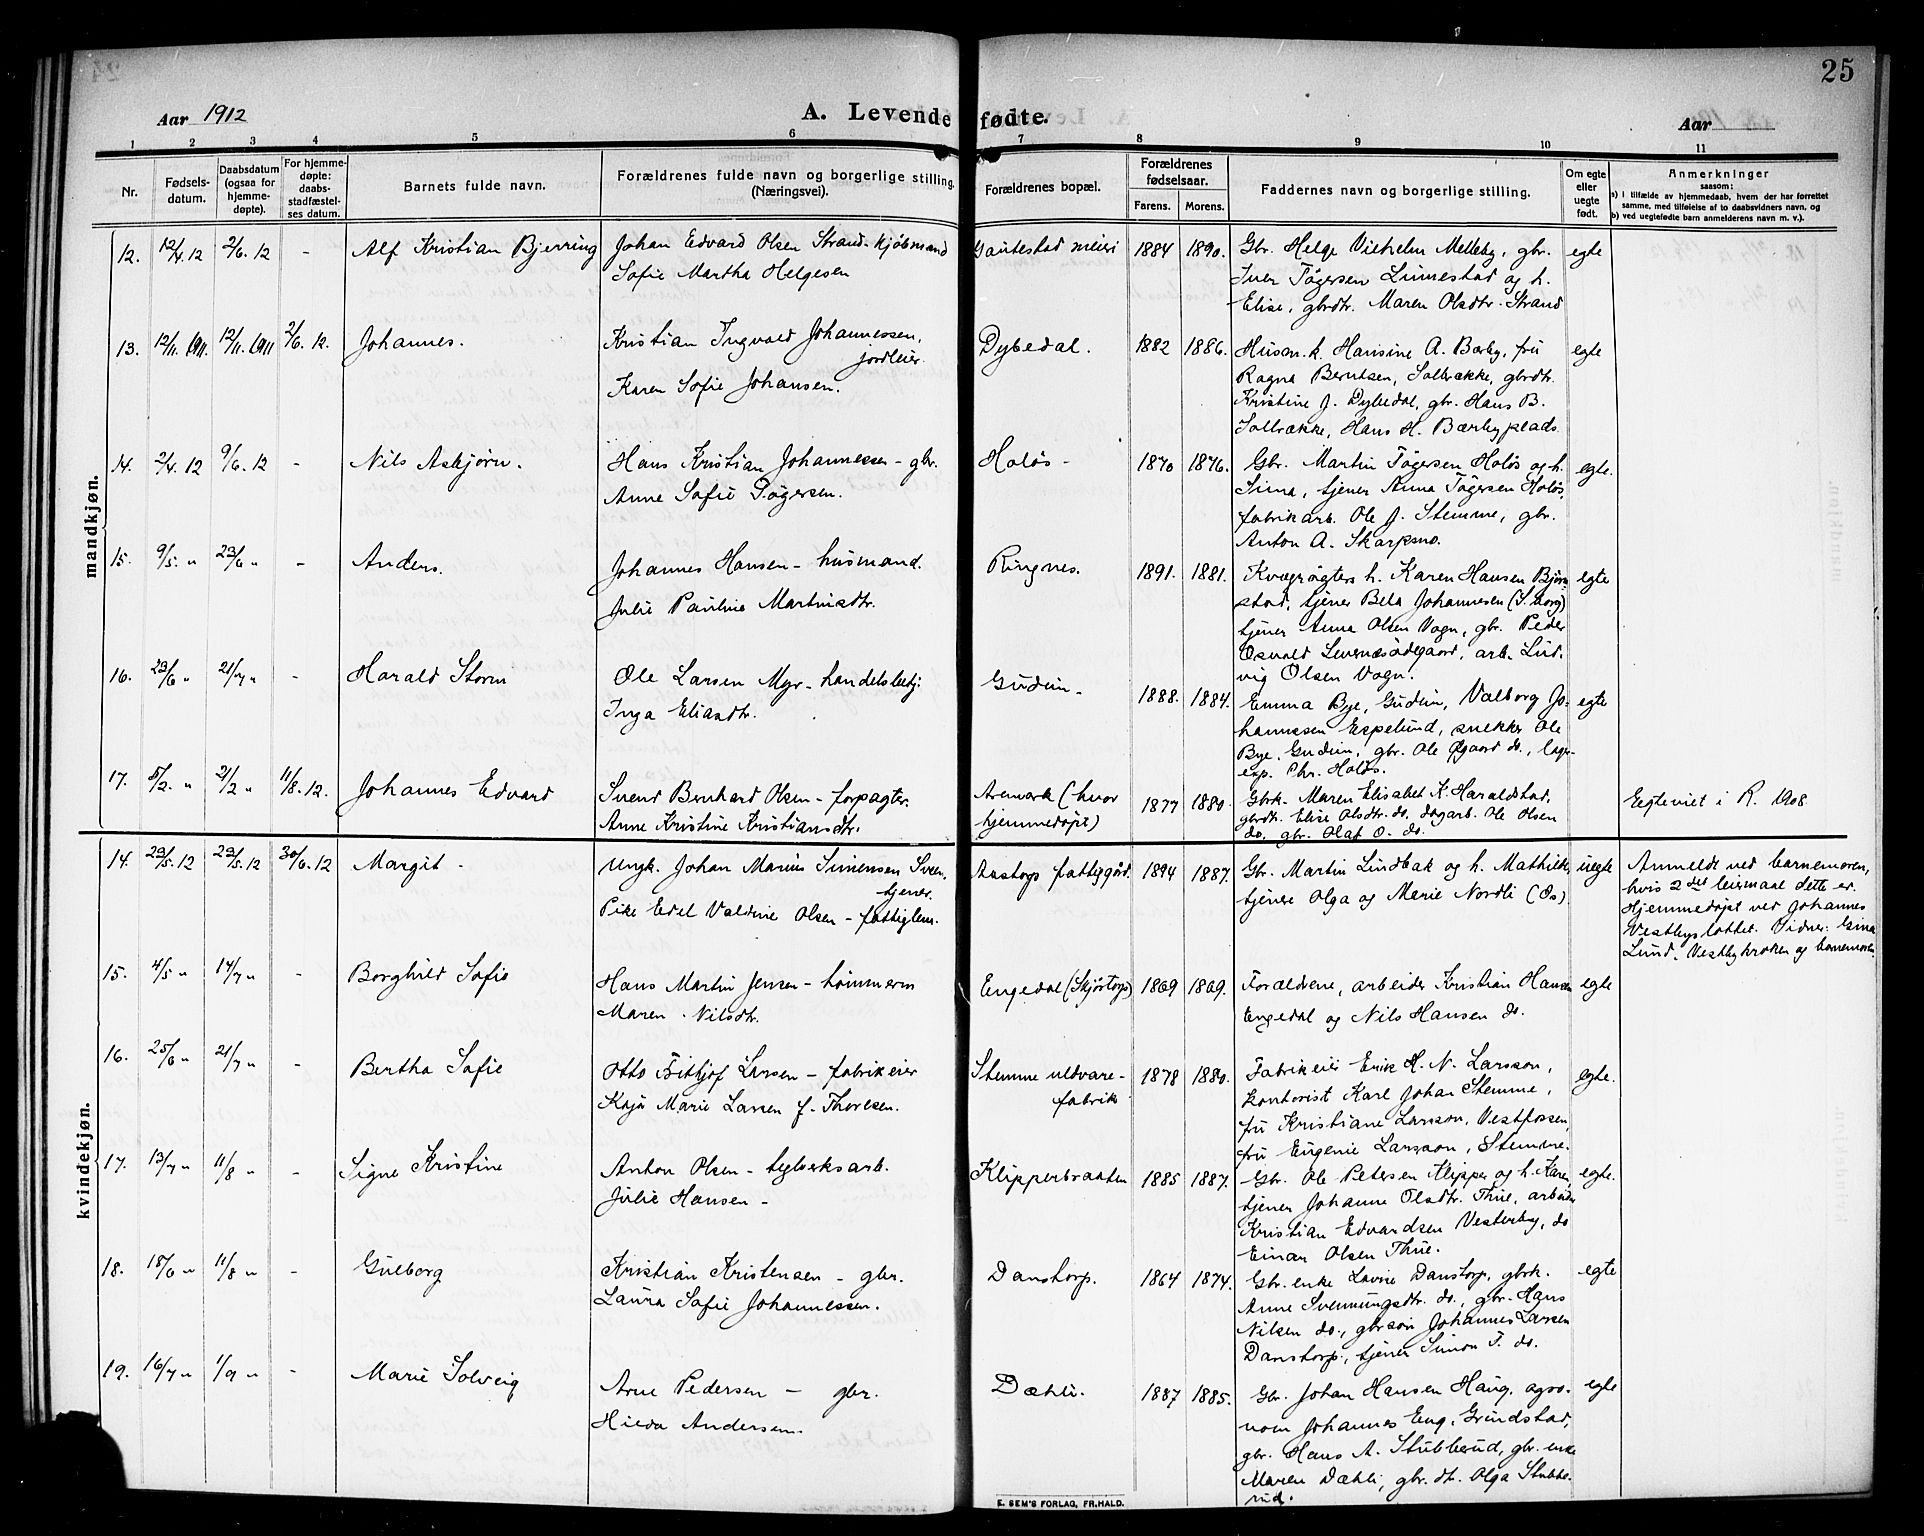 25
Aar 1912
A. Levende fødte.
Aar
1 2 3 4 5 6 7 8 9 10 11
Nr.
Fødsels-
datum.
Daabsdatum
(ogsaa for
hjemme-
døpte).
For hjemme-
døpte:
daabs-
stadfæstel-
ses datum.
Barnets fulde navn.
Forældrenes fulde navn og borgerlige stilling.
(Næringsvei).
Forældrenes bopæl.
Forældrenes
fødselsaar.
Farens. Morens.
Faddernes navn og borgerlige stilling.
Om egte
eller
uegte
født.
Anmerkninger
saasom:
a) i tilfælde av hjemmedaab, hvem der har forrettet
samme, med tilføielse af to daabsvidners navn, og
b) ved uegtefødte barn anmelderens navn m. v.).
mandkjøn.
12. 12/4. 12 2/6. 12 - Alf Kristian Bjerring
Johan Edvard Olsen Strand - kjøbmand
Sofie Martha Helgesen
Gautestad meieri 1884 1890.
Gbr. Helge Vilhelm Melleby, gbr.
Iver Tøgersen Linnestad og h.
Elise, gbrdtr. Maren Olsdtr. Strand
egte
13. 12/11. 1911. 12/11. 1911 2/6. 12. Johannes.
Kristian Ingvald Johannessen,
jordleier.
Karen Sofie Johansen.
Dybedal. 1882 1886.
Husm. k. Hansine A. Bærby, fru
Ragna Berntsen, Solbrække, gbrdtr.
Kristine J. Dybedal, gbr. Hans B.
Solbrække, Hans H. Bærbyplads.
egte
14. 2/4. 12 9/6. 12 - Nils Asbjørn.
Hans Kristian Johannessen - gbr.
Anne Sofie Tøgersen.
Holøs - 1870 1876.
Gbr. Martin Tøgersen Holøs og h.
Sina, tjener Anna Tøgersen Holøs,
fabrikarb. Ole J. Stemme, gbr.
Anton A. Skarpsno.
egte.
15. 9/5. " 23/6 " - Anders.
Johannes Hansen - husmand.
Julie Pauline Martinsdtr.
Ringnes. 1891. 1881.
Kvægrøgters h. Karen Hansen Bjørn
stad, tjener Bela Johannesen (S. borg)
tjener Anna Olsen Vagn, gbr. Peder
Osvald Levernæsødegaard, arb. Lud.
vig Olsen Vagn.
egte
16. 23/6 " 21/7 " - Harald Storm
Ole Larsen Myr - handelsbetj.
Inga Eliasdtr.
Gudim - 1888. 1884.
Emma Bye, Gudim, Valborg Jo-
hannessen Espelund, snekker Ole
Bye, Gudim, gbr. Ole Øgaard do., lager-
exp. Chr. Holøs.
egte
17. 5/2. " 2/2 " 11/8. 12. Johannes Edvard
Svend Bernhard Olsen - forpagter.
Anne Kristine Kristiansdtr.
Aremark (hvor
hjemmedøpt) 1877 1880
Gbrk. Maren Elisabet K. Haraldstad,
gbrdtr. Elise Olsdtr. do. dagarb. Ole Olsen
do. gbr. Olaf O. do.
Egteviet i R. 1908.
kvindekjøn.
14. 23/5. 12 23/5. 12 30/6. 12 Margit -
Ungk. Johan Marius Simensen Sven,
tjener.
Pike Edel Valdine Olsen - fattiglem.
Aastorp fattiggård. 1894 1887.
Gbr. Martin Lindbak og h. Mathilde,
tjener Olga og Marie Nordli (Øs)
uegte
Anmeldt ved barnemoren,
hvis 2det leiermaal dette er.
Hjemmedøpt ved Johannes
Vestbyslottet. Vidner: Gina
Lund, Vestbykroken og barnemoren.
15. 4/5 " 14/7 " - Borghild Sofie
Hans Martin Jensen - tømmerm
Maren Nilsdtr.
Engedal (Skjörtorp) 1869 1869.
Forældrene, arbeider Kristian Hansen
Engedal og Nils Hansen do.
egte
16. 25/6 " 21/7 " - Bertha Sofie
Otto Fritjof Larsen - fabrikeier
Kaja Marie Larsen f. Thoresen.
Stemme uldvare-
fabrik 1878 1880.
Fabrikeier Erik H. N. Larsson,
kontorist Karl Johan Stemme,
fru Kristiane Larsson, Vestfossen,
fru Eugenie Larsson, Stemme.
egte.
17. 13/7 " 11/8 " - Signe Kristine
Anton Olsen - teglverksarb.
Julie Hansen -
Klipperbraaten 1885 1887.
Gbr. Ole Petersen Klipper og h. Karen,
tjener Johanne Olsdtr. Thue, arbeider
Kristian Edvardsen Vesterby, do
Einar Olsen Thue.
egte.
18. 18/6 " 11/8 " - Gulborg
Kristian Kristensen - gbr.
Laura Sofie Johannessen.
Danstorp. 1864 1874.
Gbr. enke Lovise Danstorp, gbrk.
Anne Svennungsdtr. do., gbr. Hans
Nilsen do., gbrsøn Johannes Larsen
Danstorp, tjener Simon T. do.
egte
19. 16/7 " 1/9 " - Marie Solveig
Arne Pedersen - gbr.
Hilda Andersen.
Dæhli. 1887 1885.
Gbr. Johan Hansen Haug, agro-
nom Johannes Eng, Grindstad,
gbr. Hans A. Stubberud, gbr. enke
Maren Dæhli, gbr. dtr. Olga Stubbe-
rud.
egte
E. SEM'S FORLAG, FR.HALD.